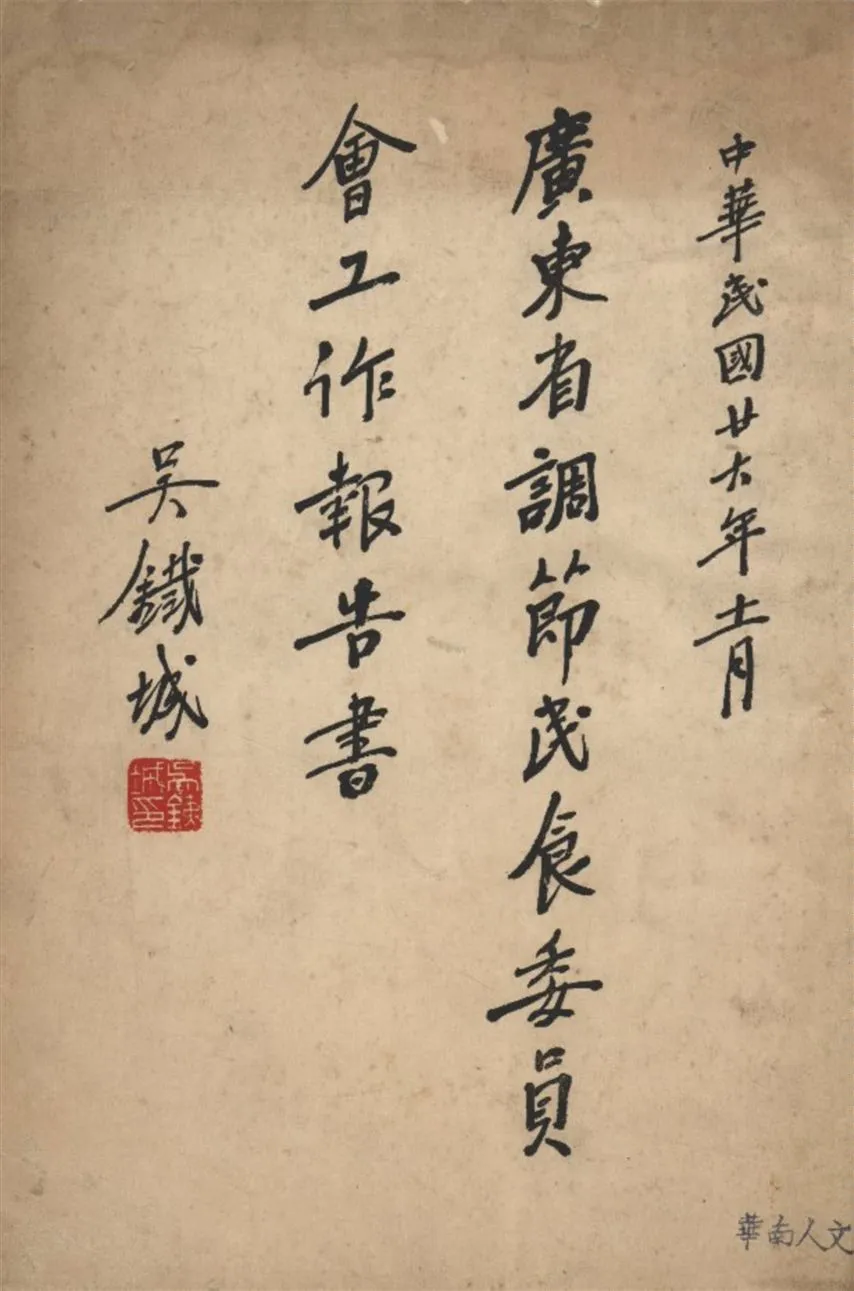 中華民國廿六年十一月
廣東省調節民食委員
會工作報告書
吳鐵城
吳鐵城印
華南人文